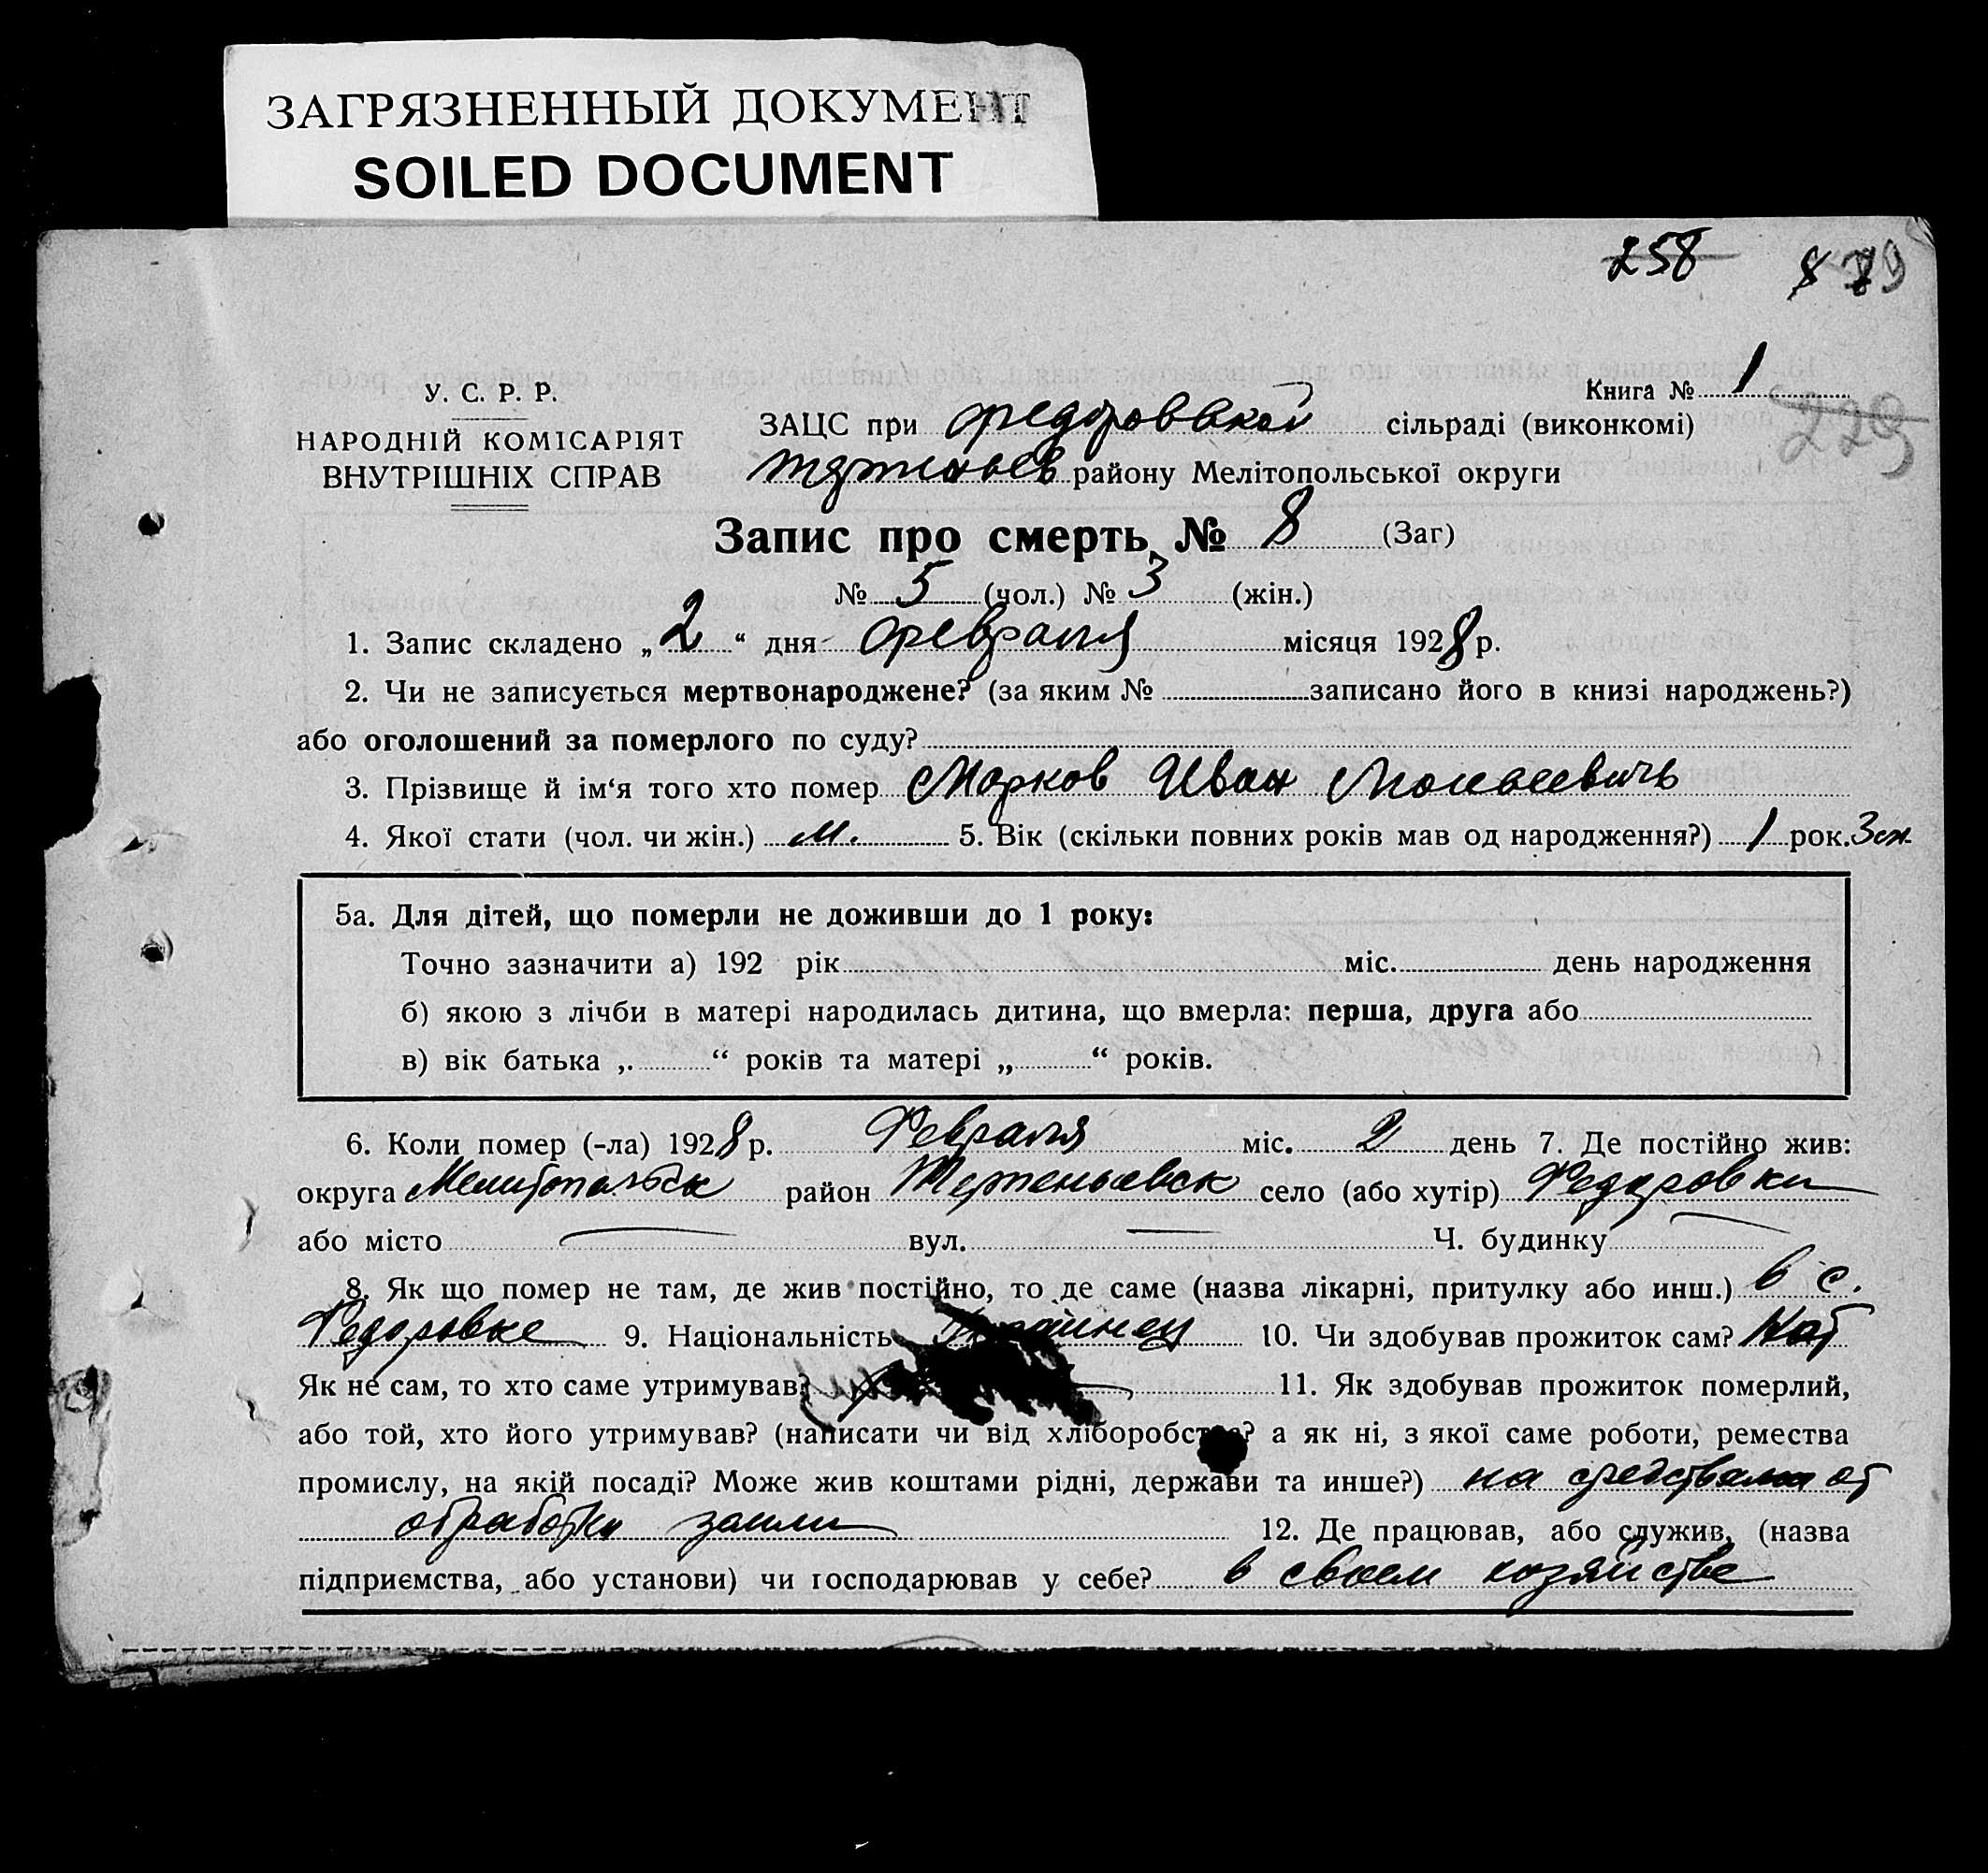 ЗАГРЯЗНЕННЫЙ ДОКУМЕНТ
SOILED DOCUMENT
258
У. С. Р. Р.
НАРОДНІЙ КОМІСАРІЯТ
ВНУТРІШНІХ СПРАВ
Книга № 1
229
ЗАЦС при Федоровской сільраді (виконкомі)
району Мелітопольської округи
Запис про смерть № 8 (Заг)
№ 5 (чол.) № 3 (жін.)
1. Запис складено „2“ дня февраля місяця 1928 р.
2. Чи не записується мертвонароджене? (за яким № записано його в книзі народжень?)
або оголошений за померлого по суду?
3. Прізвище й ім‘я того хто помер Марков Иван
4. Якої стати (чол. чи жін.) м. 5. Вік (скільки повних років мав од народження?) 1 рок.
5а. Для дітей, що померли не доживши до 1 року:
Точно зазначити а) 192 рік міс. день народження
б) якою з лічби в матері народилась дитина, що вмерла: перша, друга або
в) вік батька „ “ років та матері „ “ років.
6. Коли помер (-ла) 1928 р. Февраля міс. 2 день 7. Де постійно жив:
округа Мелитопольск район село (або хутір) Федоровки
або місто — вул. — Ч. будинку —
8. Як що помер не там, де жив постійно, то де саме (назва лікарні, притулку або инш.) в с.
Федоровке 9. Національність Украинец 10. Чи здобував прожиток сам?
Як не сам, то хто саме утримував? 11. Як здобував прожиток померлий,
або той, хто його утримував? (написати чи від хліборобства? а як ні, з якої саме роботи, ремества
промислу, на якій посаді? Може жив коштами рідні, держави та инше?) на средства от
обработки земли 12. Де працював, або служив, (назва
підприємства, або установи) чи господарював у себе? в своем хозяйстве